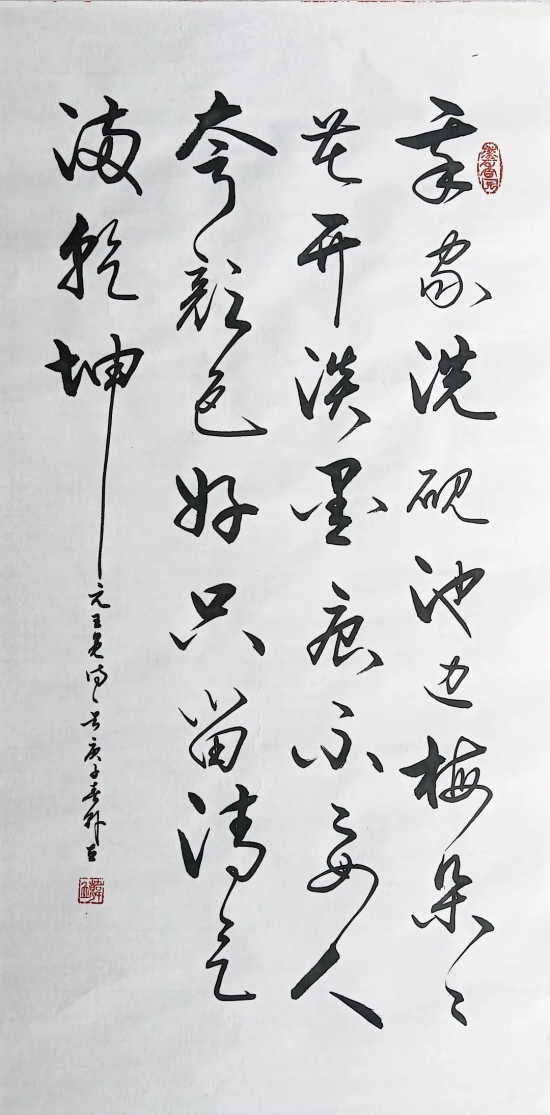 我家洗砚池边梅朵朵
花开淡墨痕不要人
夸颜色好只留清气
满乾坤
元王冕诗 庚子春